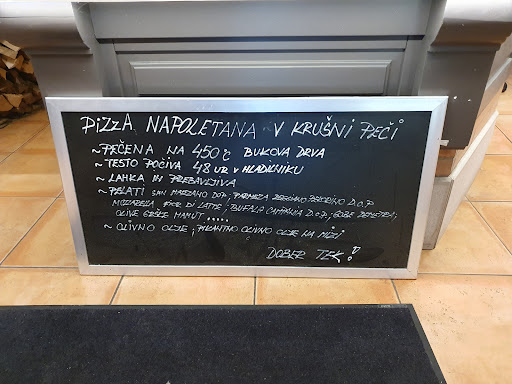 PIZZA NAPOLETANA V KRUŠNI PEČI
~ PEČENA NA 450°C BUKOVA DRVA
~ TESTO POČIVA 48 UR V HLADILNIKU
~ LAHKA IN PREBAVLJIVA
~ PELATI SAN MARZANO DOP; PARMEZA REGGIANO D.O.P
MOZZARELA FIOR DI LATTE; BUFALA CAMPANIA D.O.P; GOBE DEMETRA;
OLIVE GRŠKE MAMUT .....
~ OLIVNO OLJE; PIKANTNO OLIVNO OLJE NA MIZI
DOBER TEK!